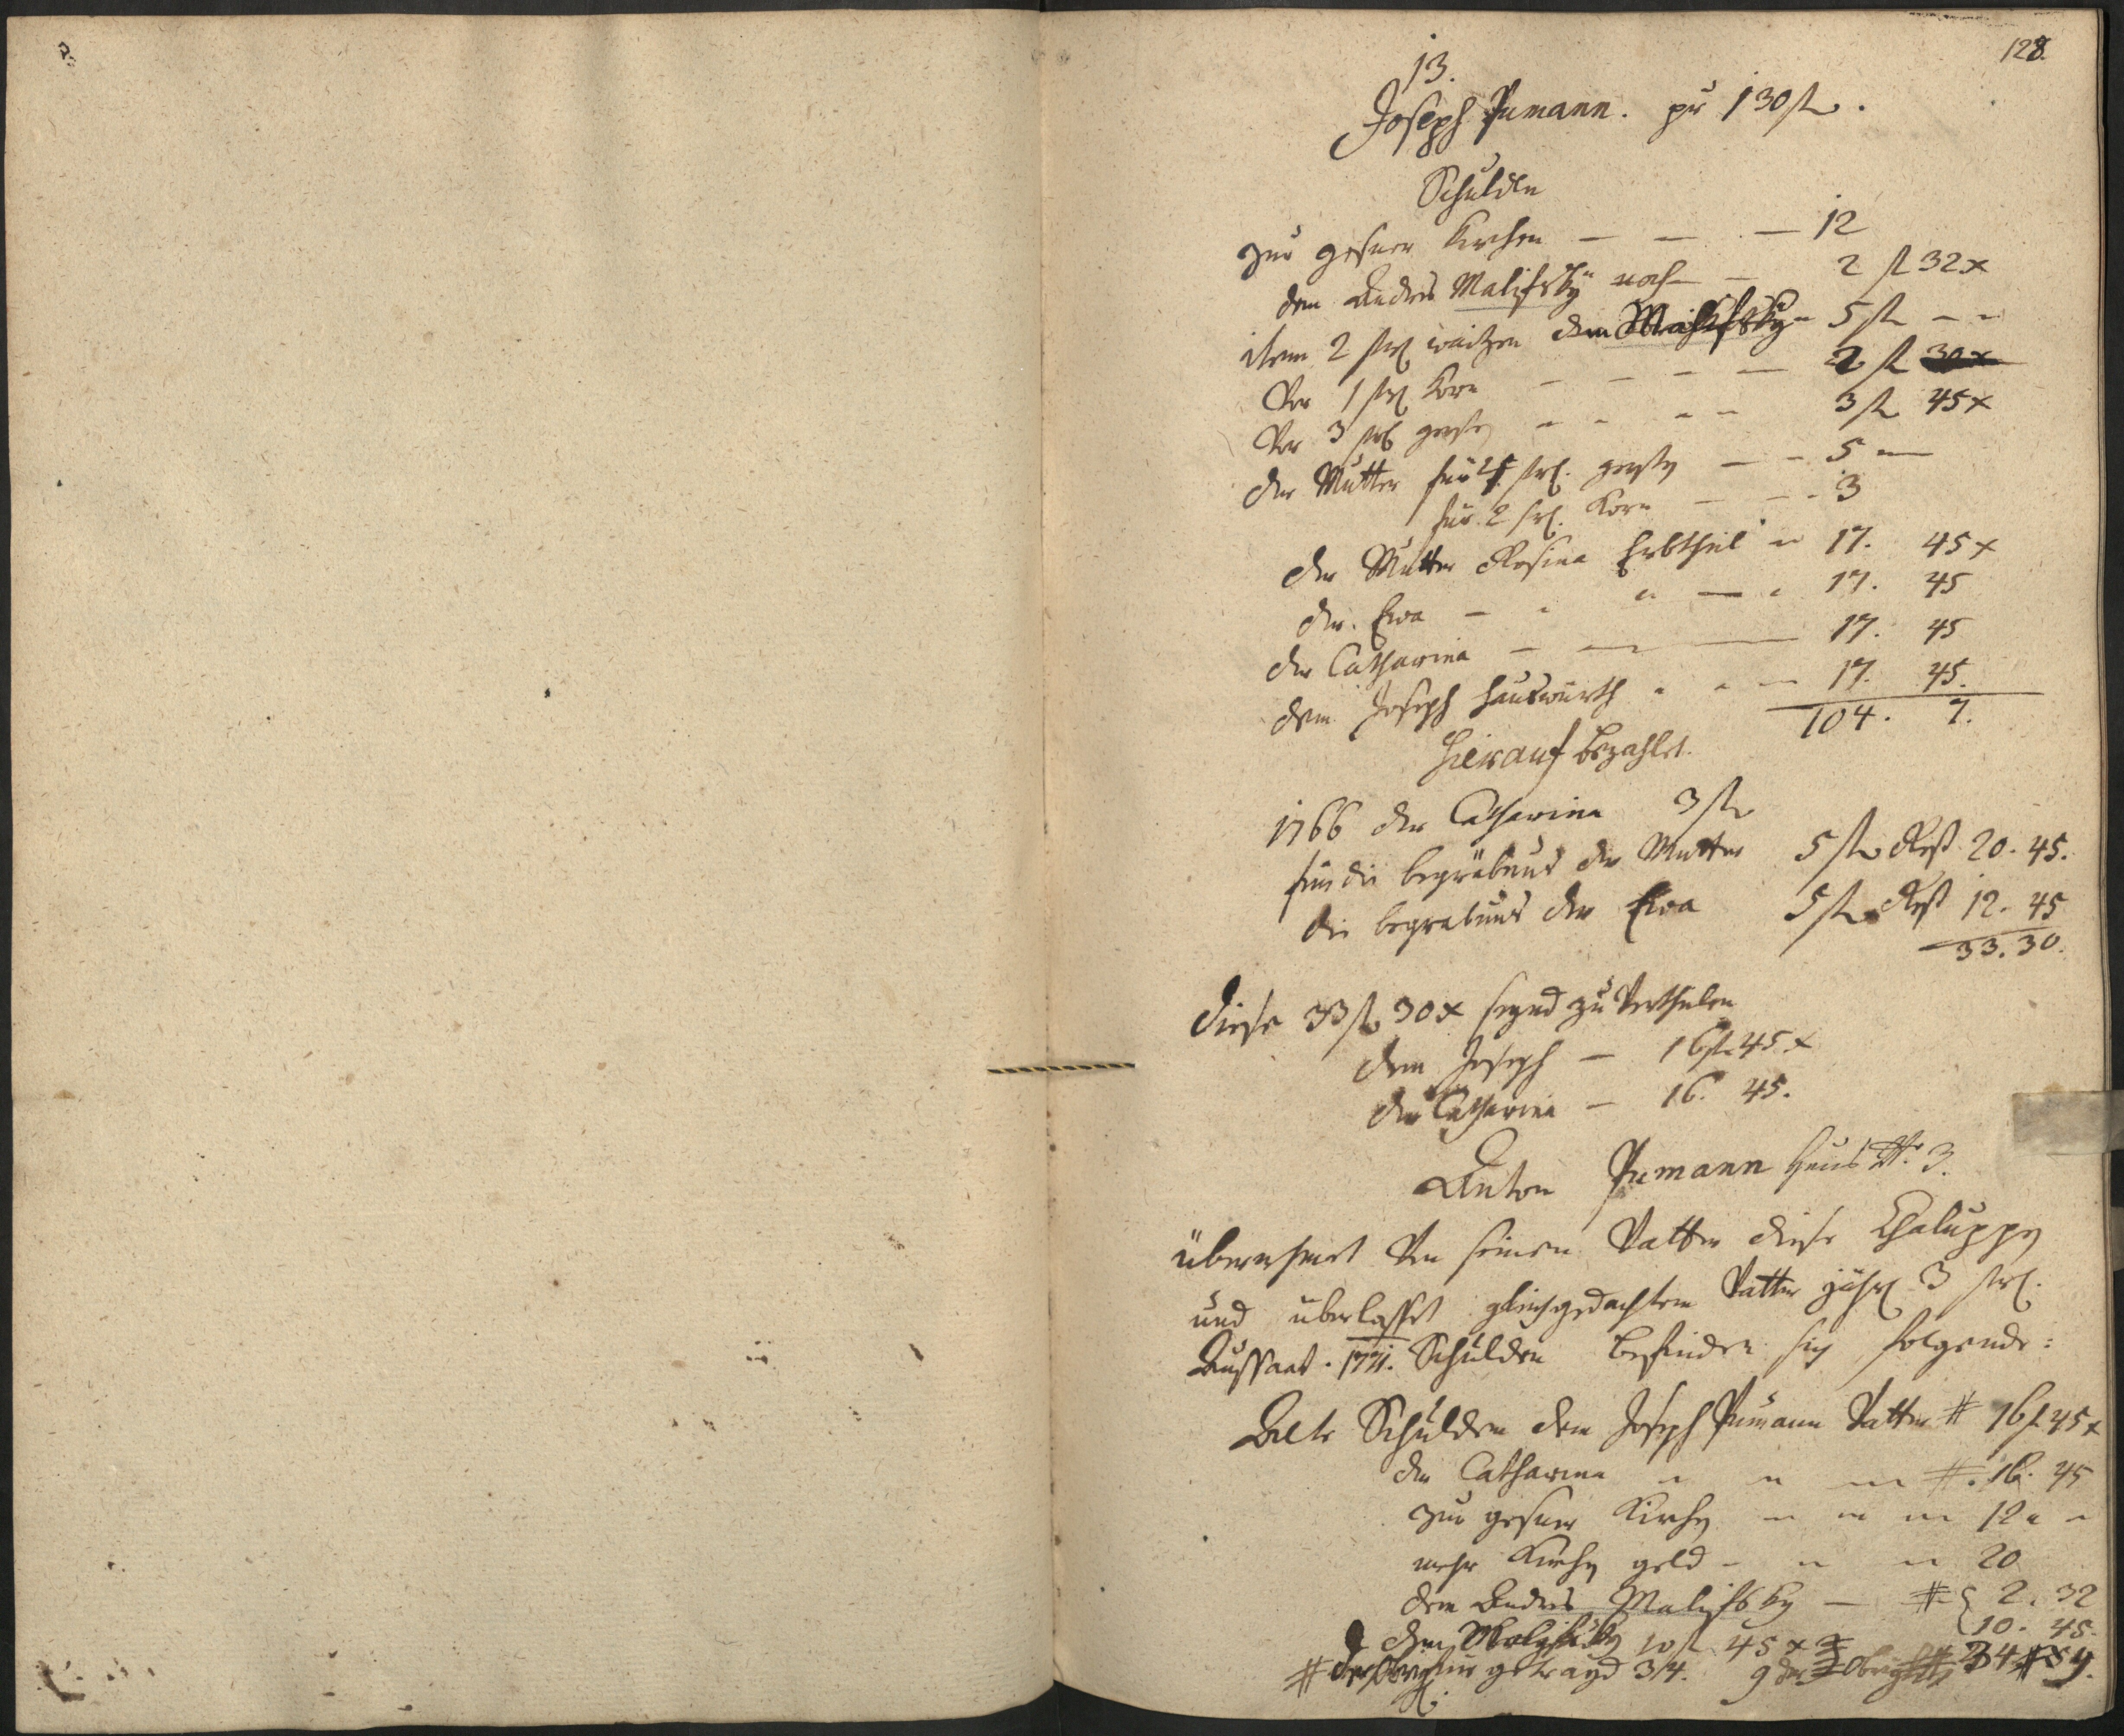 128.
13.
Joseph Pumann. pr 130 fl.
Schulden
zur gesner Kirchen — — — 12
dem Andres Malifsky noch — 2 fl 32 x
item 2 str waitzen dem Malifsky 5 fl
Vor 1 str Korn — — — — 2 fl 30 x
Vor 3 str gersten 3 fl 45 x
der Mutter für 4 str. gersten — 5
für 2 str. Korn — 3
der Mutter Rosina Erbtheil 17. 45 x
der Eva — 17. 45
der Catharina — 17. 45
dem Joseph Hauswürth 17. 45.
104. 7.
Hierauf bezahlet.
1766 der Catharina 3 fl
für die begräbnus der Mutter 5 fl Rest 20. 45.
die begräbnus der Eva 5 fl Rest 12. 45
33. 30.
diese 33 fl 30 x seynd zu Vertheilen
dem Joseph — 16 fl 45 x
der Catharina — 16. 45.
Anton Pumann Haus Nr. 3.
übernehmet Von seinen Vatter diese Chaluppen
und überlasset gleichgedachtem Vatter jährl 3 str.
Aussaat. 1771. Schulden befinden sich folgende:
Alte Schulden dem Joseph Pumann Vatter # 16 fl 45 x
der Catharina #. 16. 45
zur gesner Kirchen 12
mehr Kirchen geld 20
dem Andres Malifsky — # 2. 32
10. 45.
dem 10 fl 45 x
# der getrayd 3/4. 9 der 34